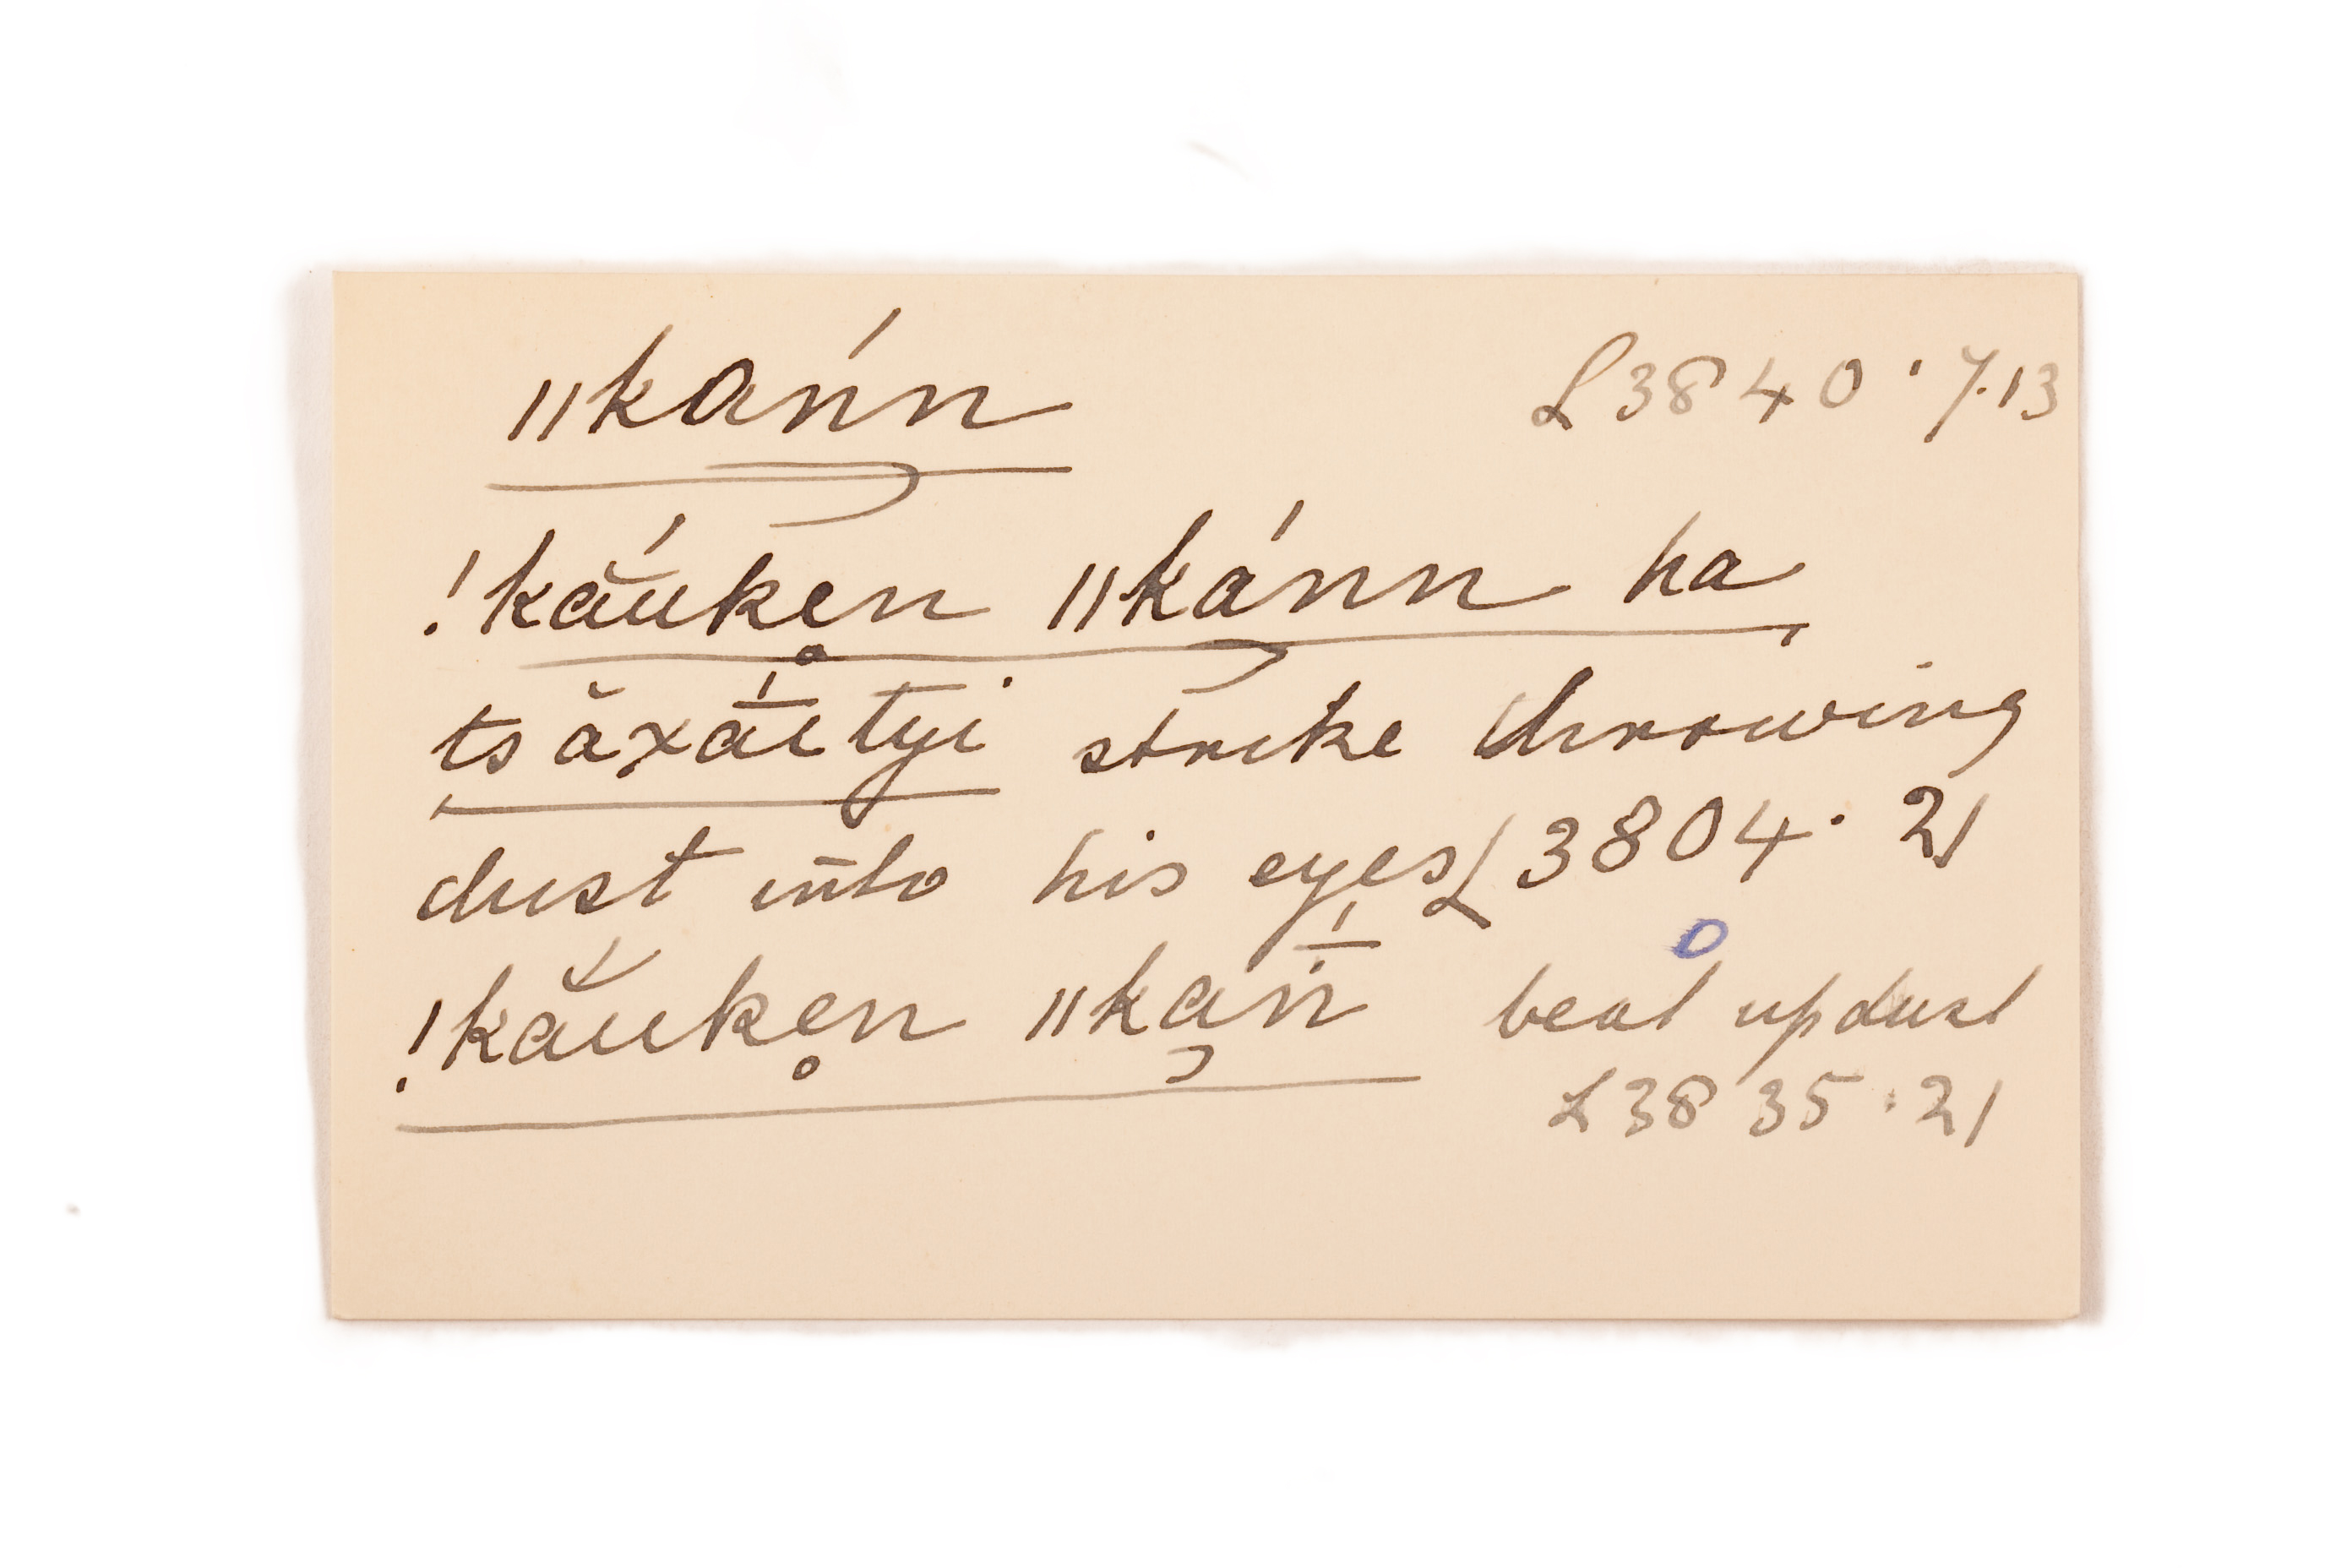 ǁkańn L3840 · 7.13
!kắuken̥ ǁkánn ha
tsǎxā́ĭtyi strike throwing
dust into his eyes L3804 · 21
!kǎuken̥ ǁkań̄ beat up dust
L3835 · 21